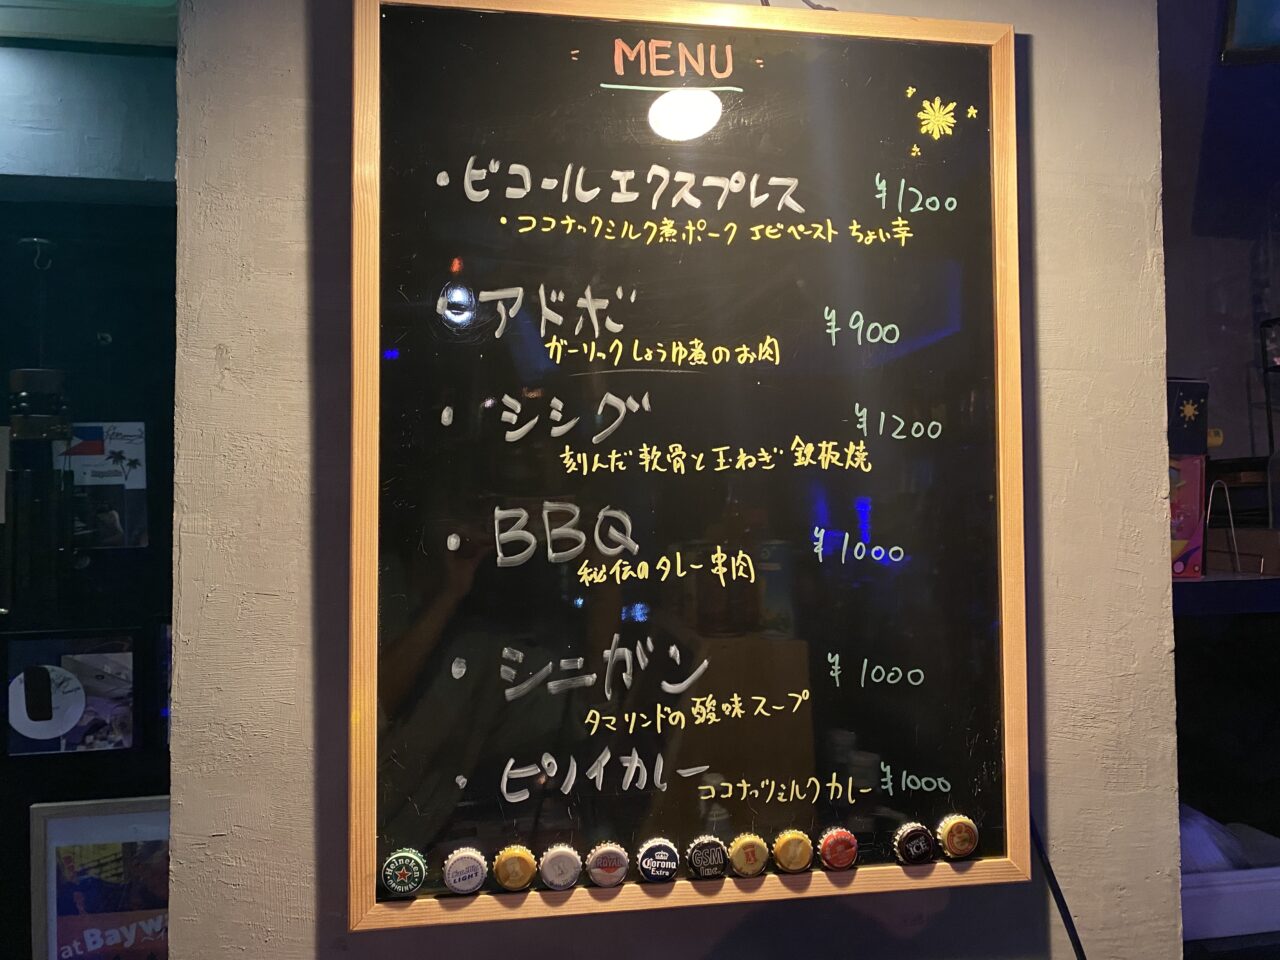 MENU
・ビコールエクスプレス ¥1200
・ココナックミルク煮ポーク エビペースト ちょい辛
・アドボ ¥900
ガーリックしょうゆ煮のお肉
・シシグ ¥1200
刻んだ軟骨と玉ねぎ 鉄板焼
・BBQ ¥1000
秘伝のタレー串肉
・シニガン ¥1000
タマリンドの酸味スープ
・ピノイカレー ¥1000
ココナッツミルクカレー
Heineken
ORIGINAL
LIGHT
ROYAL
Corona
Extra
GSM
Inc.
ICE
at Bayw